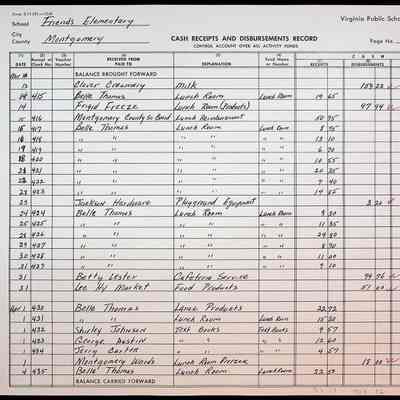 School Friends Elementary Virginia Public Scho
City
County Montgomery CASH RECEIPTS AND DISBURSEMENTS RECORD Page No.
CONTROL ACCOUNT OVER ALL ACTIVITY FUNDS
CASH
RECEIVED FROM EXPLANATION Fund Name RECEIPTS DISBURSEMENTS
PAID TO or Number
BALANCE BROUGHT FORWARD
13 Clover Creamery Milk
14 415 Belle Thomas Lunch Room Lunch Room 19 65
14 Frigid Freeze Lunch Room (Products) 47 94
15 416 Montgomery County Sc. Board Lunch Reimbursement
15 417 Belle Thomas Lunch Room Lunch Room 8 95
16 418 " " " " " "
17 419 " " " " " " 6 70
18 420 " " " " " " 10 55
21 421 " " " " " " 20 35
22 422 " " " " " " 9 40
23 423 " " " " " "
23 Jackson Hardware Playground Equipment 3 20
24 424 Belle Thomas Lunch Room Lunch Room 8 20
25 425 " " " " " " 11 35
28 426 " " " " " " 29 80
29 427 " " " " " " 8 90
30 428 " " " " " " 11 00
31 429 " " " " " " 9 10
31 Betty Lester Cafeteria Service 94 76
31 Lee Hy Market Food Products 51 00
Apr 1 430 Belle Thomas Lunch Products 22 72
1 431 " " Lunch Room Lunch Room
1 432 Shirley Johnson Text Books Text Books 9 57
1 433 George Austin " " " " 12 60
1 434 Jerry Carter " " " " 4 57
1 Montgomery Wards Lunch Room Freezer 18 00
4 435 Belle Thomas Lunch Room Lunch Room
BALANCE CARRIED FORWARD